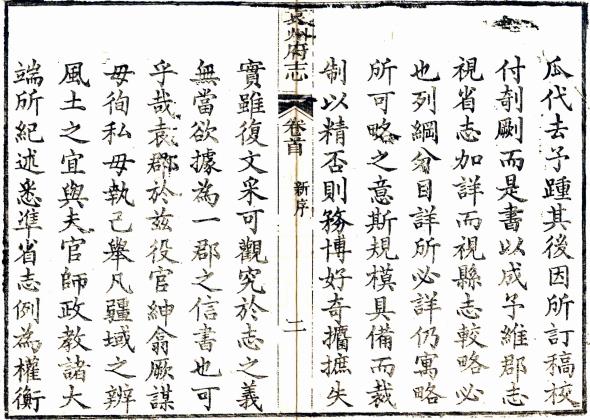 瓜代去予踵其後因所訂稿校
付剞劂而是書以成予維郡志
視省志加詳而視縣志較略必
也列綱分目詳所必詳仍寓略
所可略之意斯規模具備而裁
制以精否則務博好奇攟摭失
袁州府志
卷首
新序
二
實雖復文采可觀究於志之義
無當欲據為一郡之信書也可
乎哉袁郡於茲役官紳翕厥謀
毋徇私毋執己舉凡疆域之辨
風土之宜與夫官師政教諸大
端所紀述悉準省志例為權衡